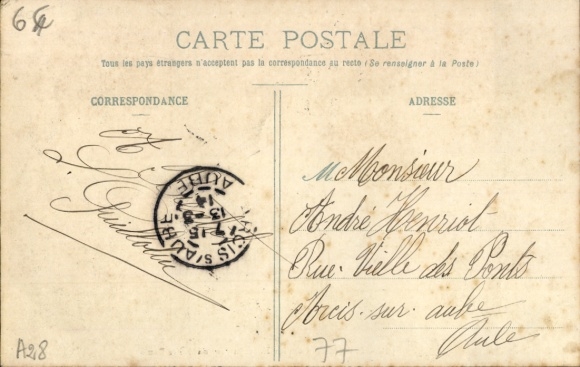 6
CARTE POSTALE
Tous les pays étrangers n'acceptent pas la correspondance au recto (Se renseigner à la Poste)
CORRESPONDANCE
ADRESSE
M Monsieur
André Henriot
Rue Vielle des Ponts
Arcis-sur-aube
Aube
ARCIS S/ AUBE
17 15
13-3
14
AUBE
A28
77